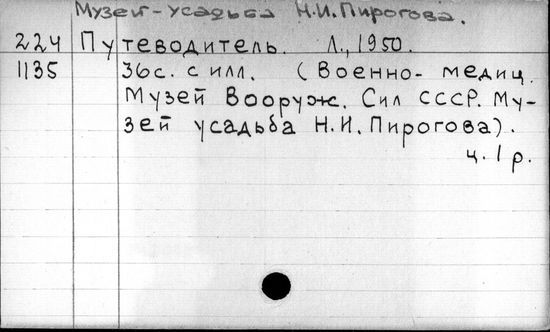 Музей-усадьба Н.И.Пирогова.
224 Путеводитель. Л., 1950.
1135 36с. с илл. (Военно-медиц.
Музей Вооруж. Сил СССР. Му-
зей усадьба Н.И.Пирогова).
ц. 1 р.